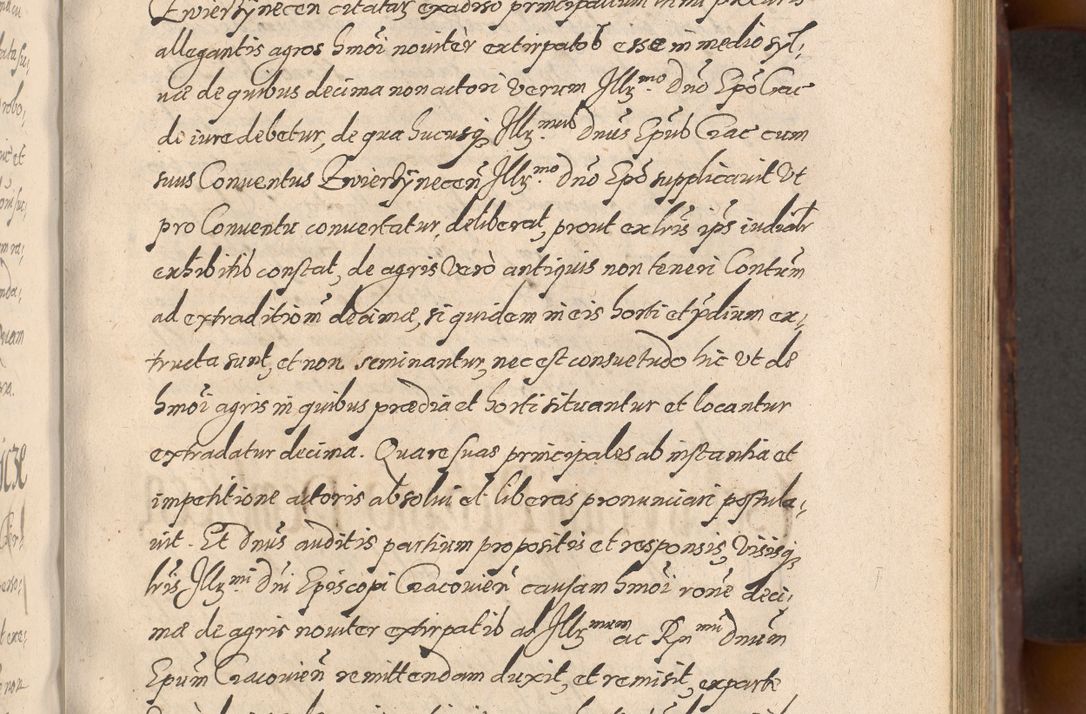 Zwierzynecen citatas ex adverso principalium in mi
allegantis agros hmoi noviter extirpatos esse in medio syl,
væ de quibus decima non actori verum Illr.mo Dno Epo Crac
de iure debetur, de qua hucusq Illr.mus Dnus Epus Crac cum
suus Conventus Zwierzynecen Illr.mo Dno Epo supplicavit Ut
pro Conventu convertatur, deliberat, prout ex lris ips iudicialr
exhibitis constat, de agris vero antiquis non teneri Contum
ad extraditiom decimæ, si quidem in eis horti et prdium ex,
tructa sunt, et non seminantur, nec est consuetudo hic Ut de
hmoi agris in quibus prædia et horti situantur et locantur
extradatur decima. Quare suas principales ab instantia et
impetitione actoris absolvi et liberas pronunciari postula,
vit. Et Dnus auditis partium propositis et responsis, Visisq
lris Illr.mi Dni Episcopi Cracovien causam hmoi rone deci,
mæ de agris noviter extirpatis ad Illr.mum ac Rn mu Dnum
Epum Cracovien remittendam duxit, et remisit, ex parte